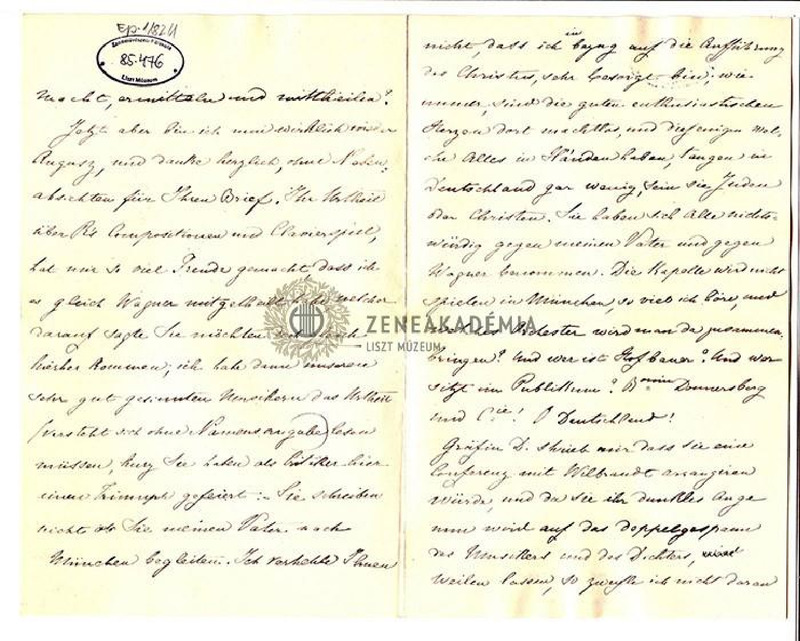 Ep. 1/82/1
Zeneművészeti Főiskola
85.476
Liszt Múzeum
macht, ermitteln und mittheilen?
Jetzt aber bin ich nun wirklich wieder
Augusz, und danke herzlich, ohne Neben-
absichten für Ihren Brief. Ihr Urtheil
über R's Compositionen und Clavierspiel,
hat mir so viel Freude gemacht, dass ich
es gleich Wagner mitgetheilt habe welcher
darauf sagte Sie möchten doch
hierher kommen; ich habe dann unseren
sehr gut gesinnten Musikern das Urtheil
(versteht sich ohne Namensangabe) lesen
müssen, kurz Sie haben als Critiker hier
einen Triumph gefeiert. Sie schreiben
nicht ob Sie meinen Vater nach
München begleiten. Ich verhehle Ihnen
nicht, dass ich in bezug auf die Aufführung
des Christus, sehr besorgt bin; wie
immer, sind die guten enthusiastischen
Herzen dort machtlos, und diejenigen wel-
che Alles in Händen haben, taugen in
Deutschland gar wenig, sein sie Juden
oder Christen. Sie haben sich Alle nichts-
würdig gegen meinen Vater und gegen
Wagner benommen. Die Kapelle wird nicht
spielen in München, so viel ich höre, und
welches Orchester wird man da zusammen-
bringen? Und wer ist Hofbauer? Und wer
sitzt im Publikum? Bonin Donnersberg
und Cie! O Deutschland!
Gräfin D. schrieb mir dass sie eine
Conferenz mit Wilbrandt arrangiren
würde, und da sie ihr dunkles Auge
nun wird auf das doppelgespann
des Musikers und des Dichters,
weilen lassen, so zweifle ich nicht daran
ZENEAKADÉMIA
LISZT MÚZEUM